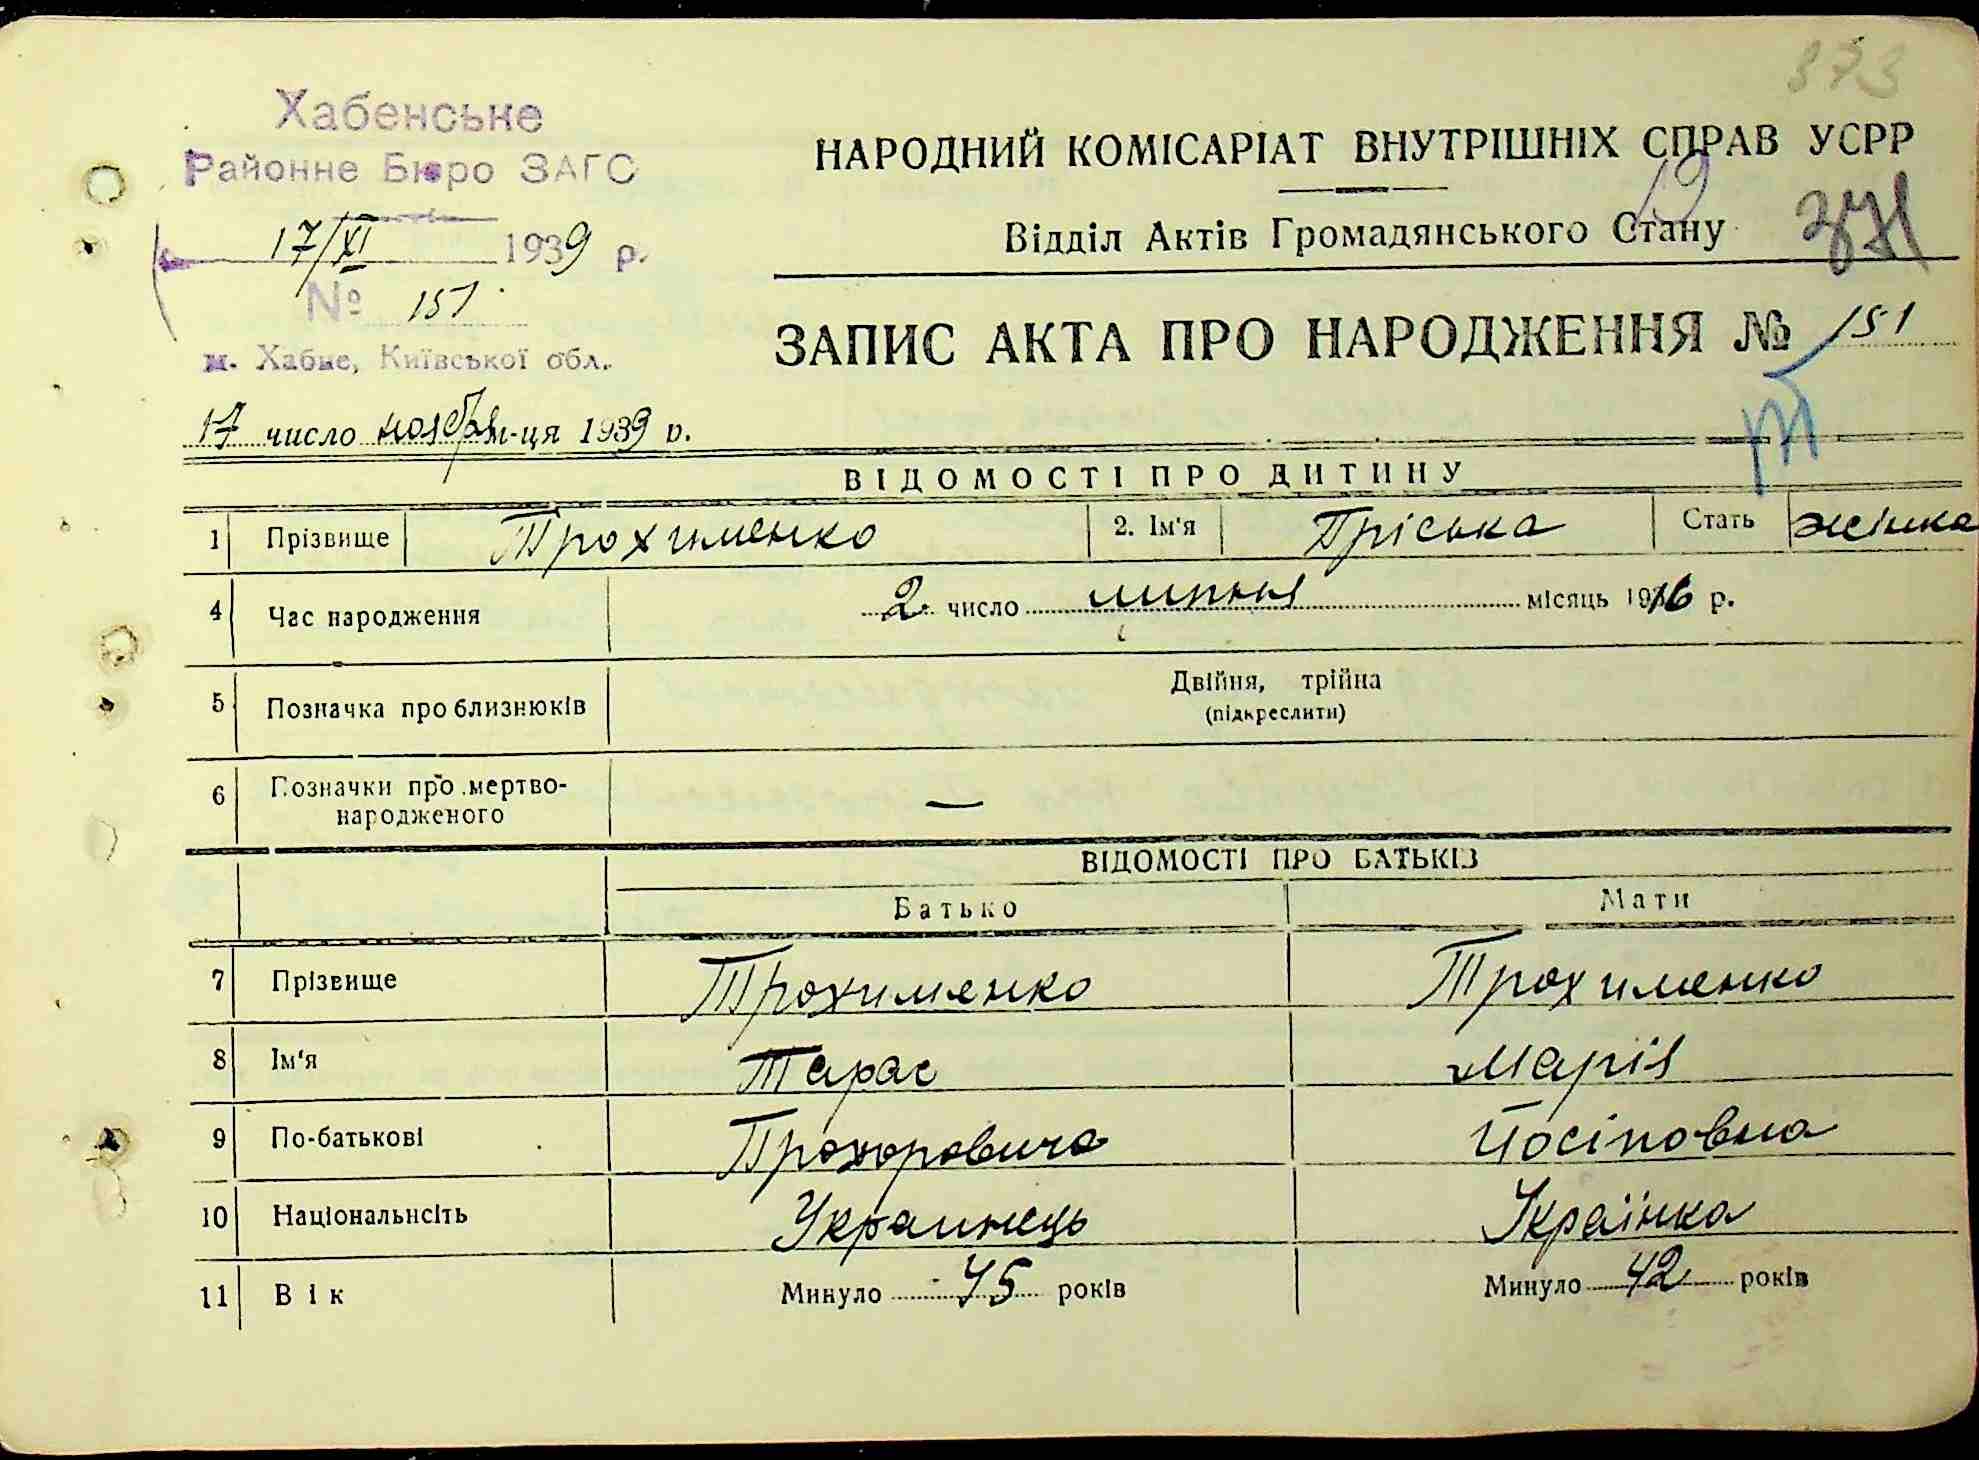 373
Хабенське
Районне Бюро ЗАГС
17/XI 1939 р.
№ 151
м. Хабне, Київської обл.
НАРОДНИЙ КОМІСАРІАТ ВНУТРІШНІХ СПРАВ УСРР
19
Відділ Актів Громадянського Стану
371
ЗАПИС АКТА ПРО НАРОДЖЕННЯ № 151
17 число ноября м-ця 1939 р.
ВІДОМОСТІ ПРО ДИТИНУ
1 Прізвище Трохименко 2. Ім'я Пріська Стать жінка
4 Час народження 2 число липня місяць 1916 р.
5 Позначка про близнюків Двійня, трійна
(підкреслити)
6 Позначки про мертво-
народженого —
ВІДОМОСТІ ПРО БАТЬКІВ
Батько Мати
7 Прізвище Трохименко Трохименко
8 Ім'я Тарас Марія
9 По-батькові Прохорович Йосіповна
10 Національнсіть Украинець Українка
11 Вік Минуло 45 років Минуло 42 років